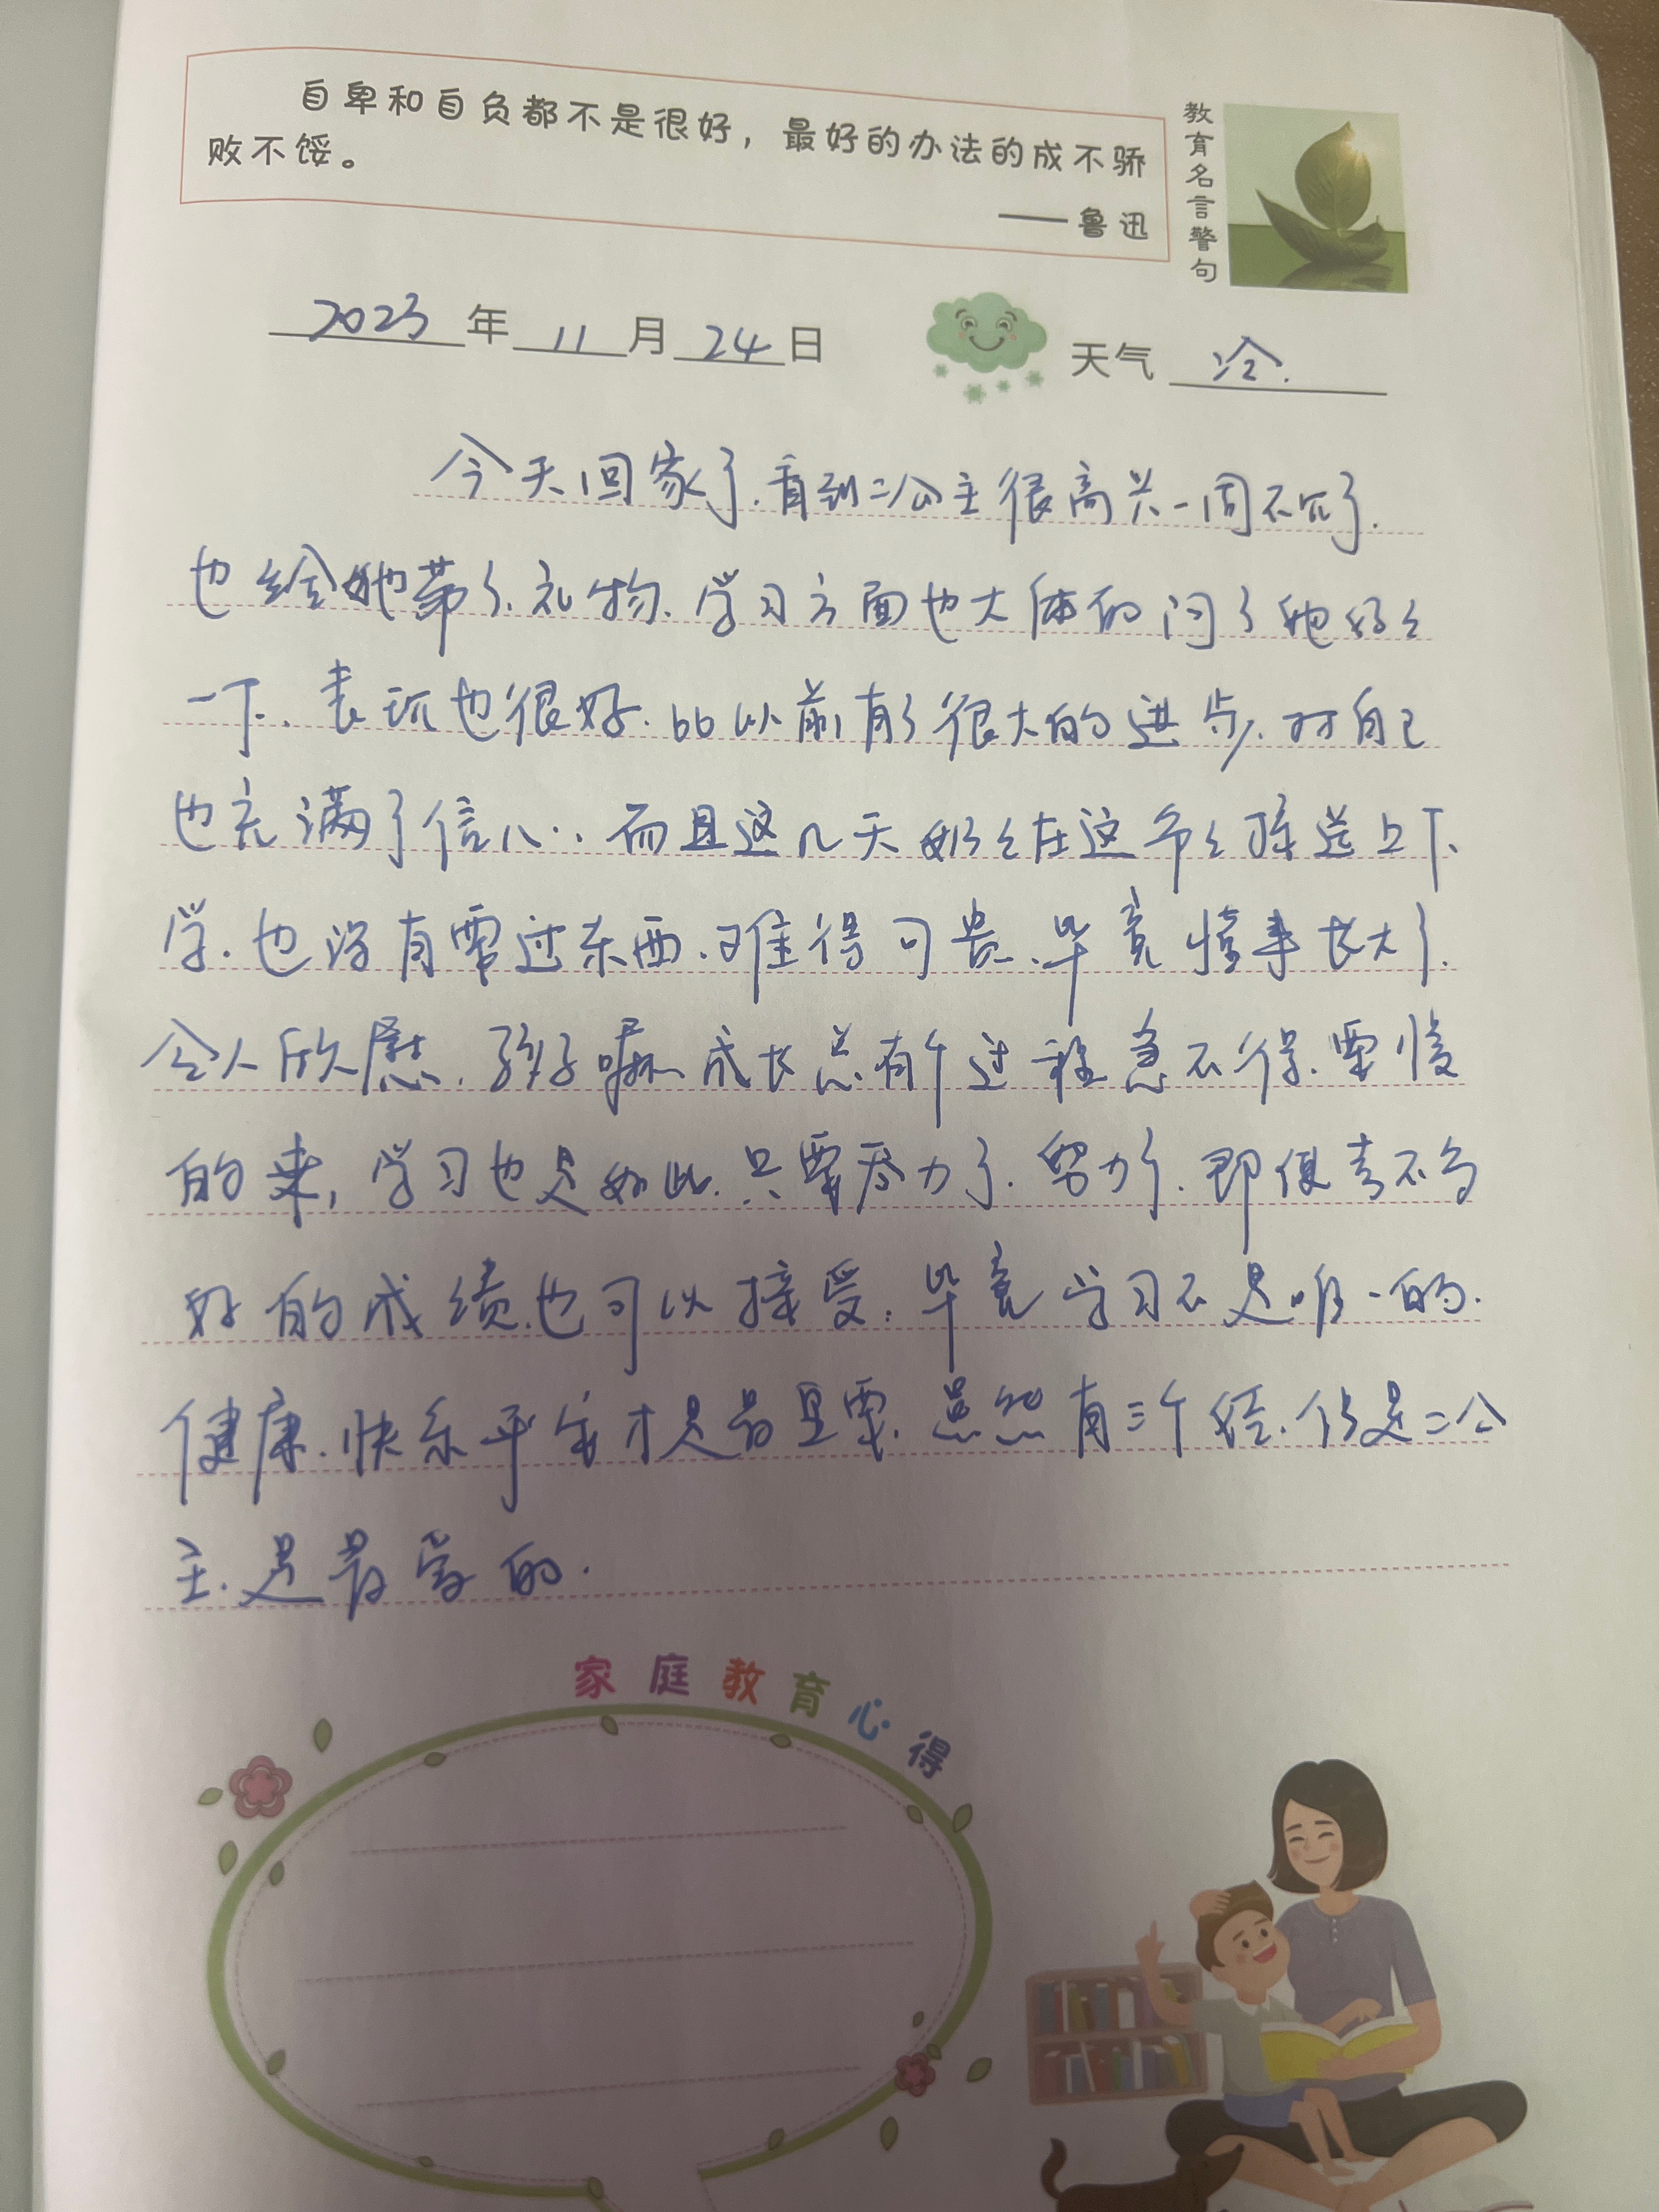 自卑和自负都不是很好，最好的办法的成不骄
败不馁。
——鲁迅
教育名言警句
2023年11月24日 天气 冷.
今天回家了.看到二公主很高兴一周不见了.
也给她带了.礼物.学习方面也大体的问了她好好
一下.表现也很好.比以前有了很大的进步.对自己
也充满了信心..而且这几天奶奶在这爷爷接送上下
学.也没有要过东西.难得可贵.毕竟懂事长大了.
令人欣慰.孩子嘛成长总有个过程急不得.要慢
的来,学习也是如此.只要尽力了.努力了.即便考不了
好的成绩.也可以接受.毕竟学习不是唯一的.
健康.快乐平安才是最重要.虽然有三个娃.但是二公
主.是最爱的.
家庭教育心得